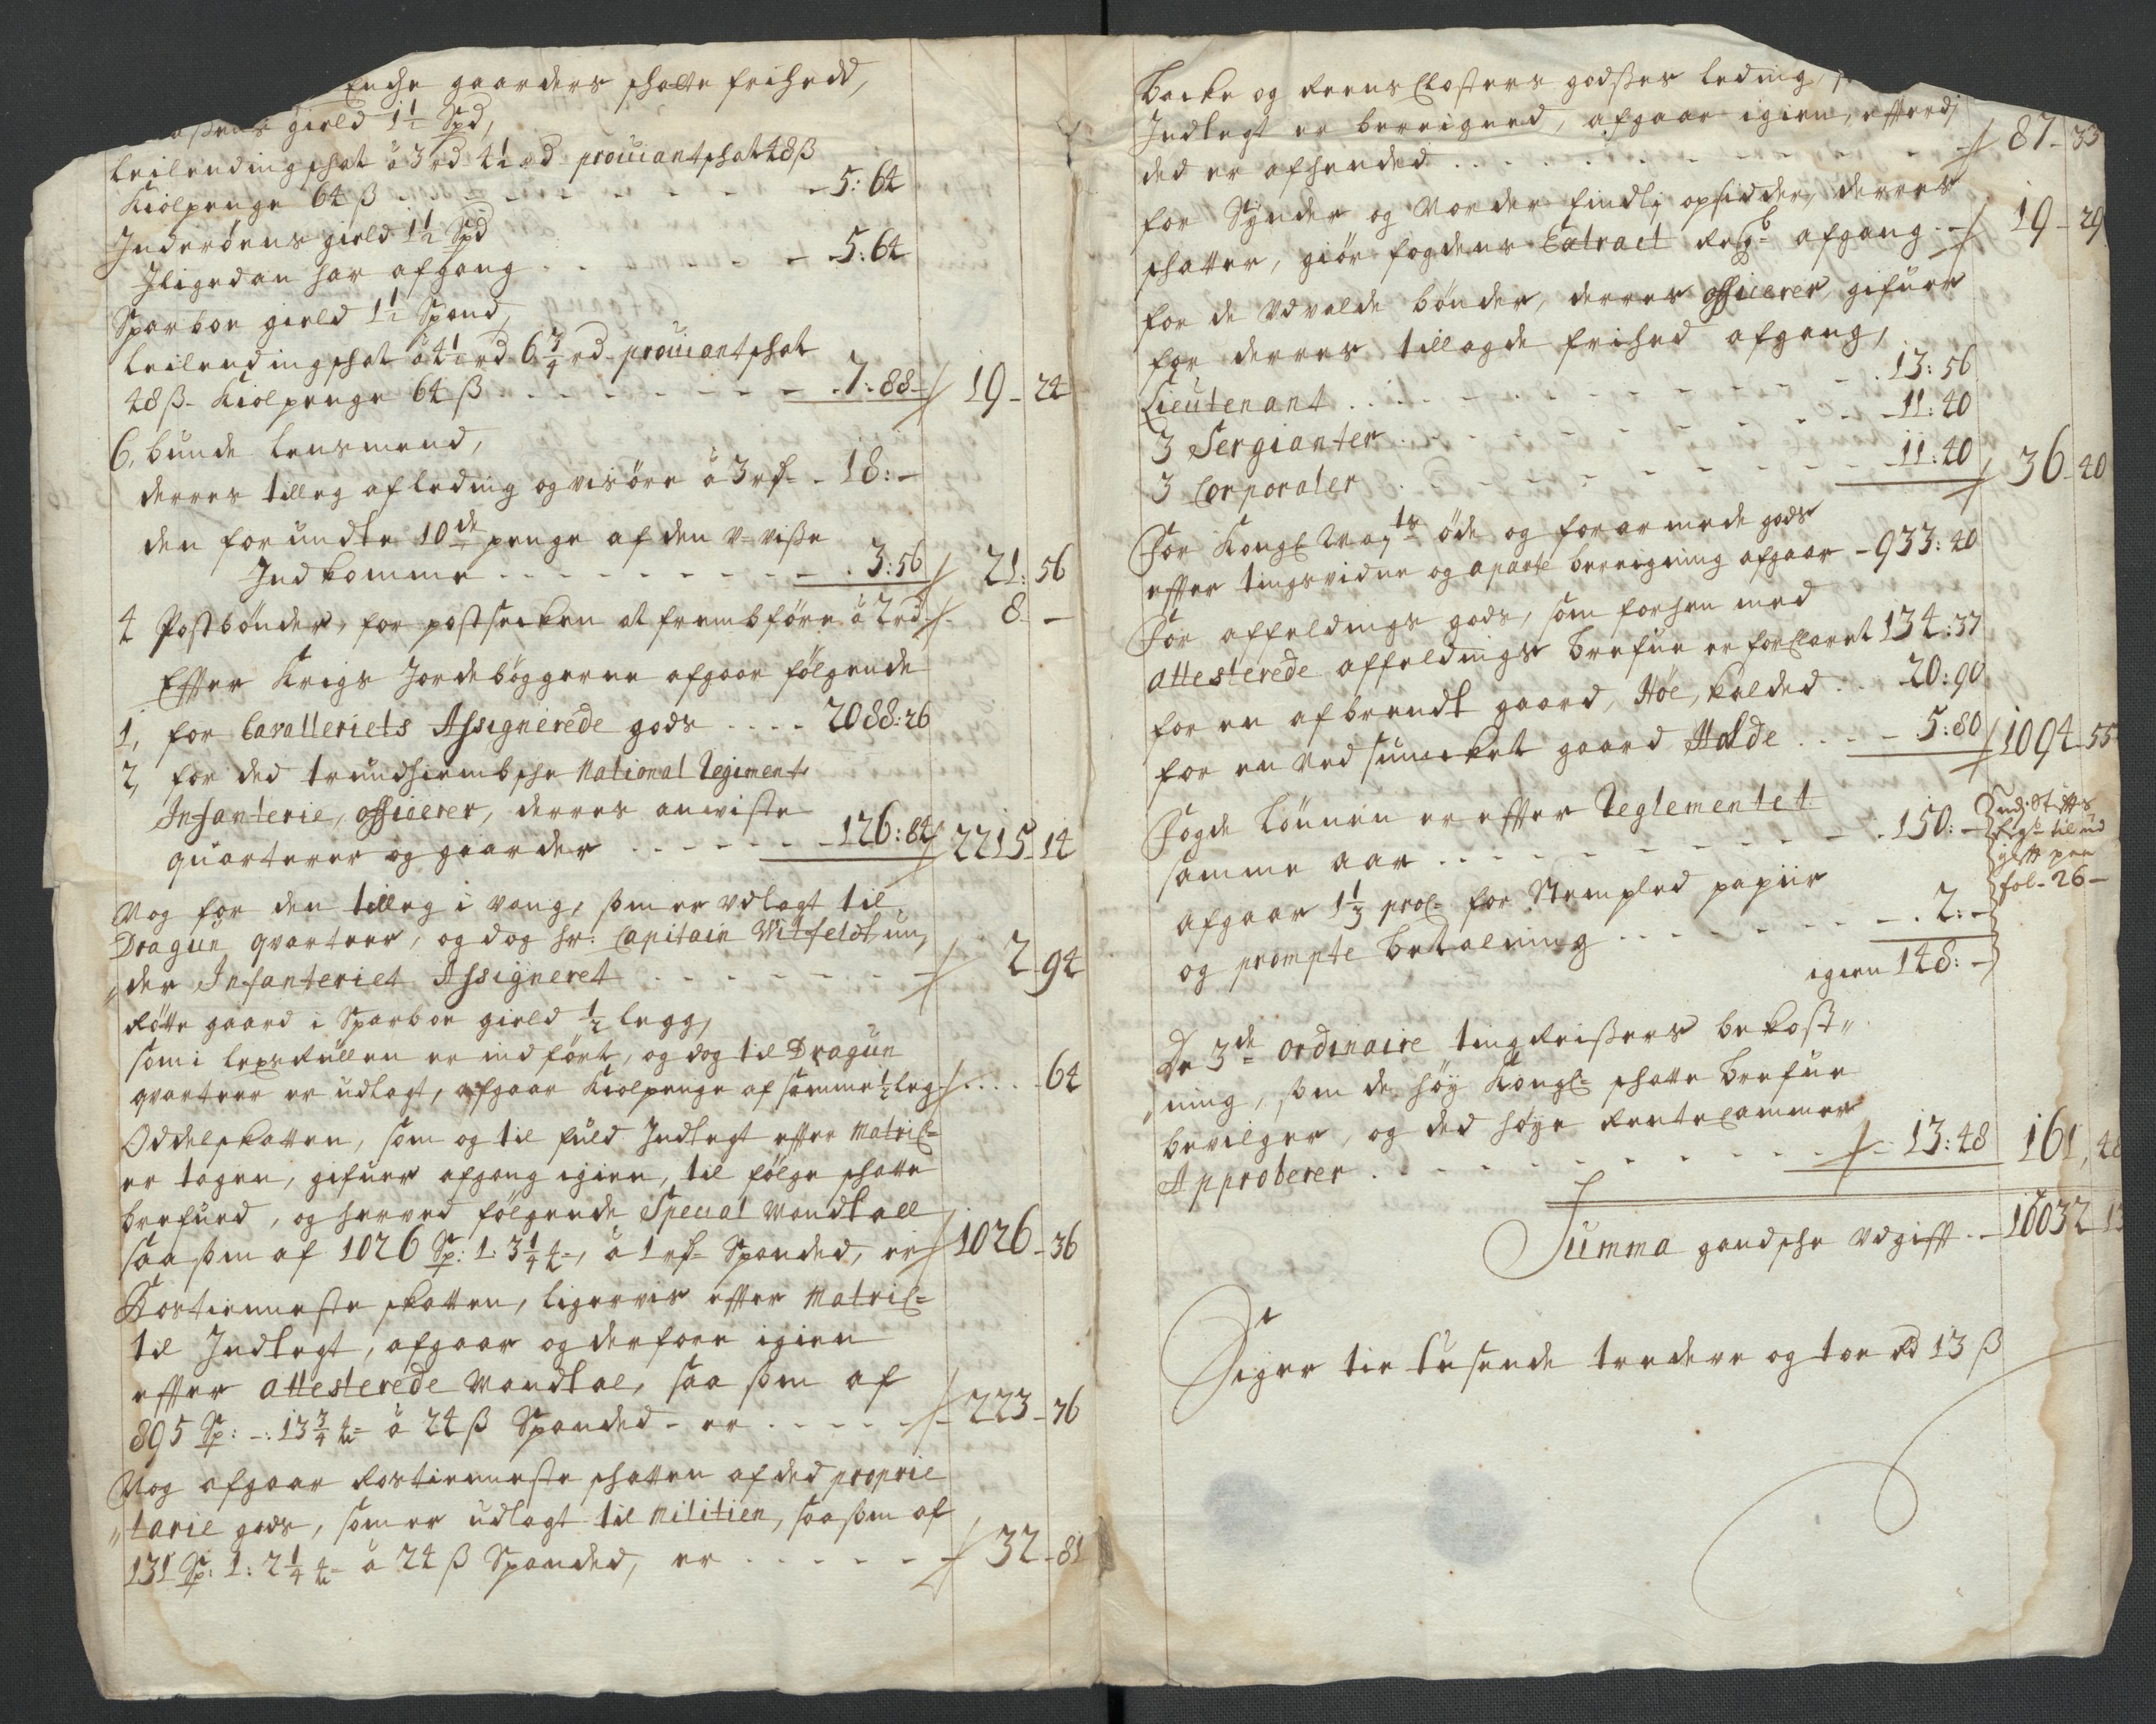 Enche gaarders schatte frihedd,
gield 1½ Spd,
Leilendingschat à 3 rd 4½ rd prouiantschat 48 ß
Kiölpenge 64 ß - - - - - - 5: 64
Inderöens gield 1½ Spd
Iligedan har afgang . . - - - - 5: 64
Sparboe gield 1½ Spand,
Leilendingschat à 4½ rd 6¾ rd prouiantschat
48 ß - Kiolpenge 64 ß . - - - - - - 7: 88 - 19 - 24
6, bunde lensmend,
derres tilleg af leding og visöre à 3 rd - 18: -
den forundte 10de penge af den v-visse
Indkomme - - - - - - - 3: 56 21: 56
4 Postbönder, for postsecken at frembföre à 2 rd 8 -
Efter Krigs Jordebögerne afgaar fölgende
1, for Cavalleriets Assignerede gods - - - - 2088: 26
2, for ded trundhiembsche National Regiment
Infanterie, officerer, derres anviste
quarterer og gaarder - - - - - - 126: 84 2215 - 14
Nog for den tilleg i vang, som er vdlagt til
Dragun qvarteer, og dog hr: Capitain Witfeldt un,
der Infanteriet Assigneret - - - - - - 2 - 94
Rötte gaard i Sparboe gield ½ legg,
som i leyerullen er indfört, og dog til Dragun
qvarteer er udlagt, afgaar Kiolpenge af samme ½ leg - . . . 64
Oddelskatten, som og til fuld Indtegt efter Matric=
er tagen, gifuer afgang igien, til fölge schatte
brefued, og herved fölgende Special Mandtall
saa som af 1026 Sp: 1: 3¼ , à 1 rd Spanded, er 1026 - 36
Rostienneste skatten, ligerviis efter Matric=
til Indtegt, afgaar og derfore igien
efter attesterede Mandtal, saa som af
895 Sp: -: 13¾ à 24 ß Spanded - er - - - - 223 - 76
Nog afgaar Rostienneste schatten af ded proprie
tarie gods, som er udlagt til Militien, saa som af
131 Sp: 1: 2¼ à 24 ß Spanded, er . - - - - 32 - 81
Backe og Reens Closters godsses leding,
Indtegt er bereigned, afgaar igien, efterdj
ded er afhended . . - - - - - - - 87 - 33
for opsidder, derres
schatter, giör fogdens Extract afgang - 19 - 29
for de Vdvalde bönder, derres officerer, gifuer
for derres tillagde frihed afgang,
Lieutenant . . . - - - - - - - 13: 56
3 Sergianter . - - - - - - - 11: 40
3 Corporaler . - - - - - - - 11: 40 36 - 40
For Kongl May:ts öde og forarmede gods
efter tingsvidne og aparte bereigning afgaar - 933: 40
For affeldings gods, som forhen med
attesterede affeldings brefue er forklaret 134: 37
for en afbrendt gaard, Höe, kalded . . - 20: 90
for en ved suncket gaard Halde . - - - 5: 80 1094 - 55
Fogde lönnen er efter Reglementet
samme aar . - - - - - - - - 150: -
til ud
gift paa
fol - 26 -
afgaar 1⅓ proc for Stempled papiir
og prompte betalning - - - - - - - 2: -
igien 148: -
De 3de ordinaire tingreissers bekost„
„ning, som de höy Kongl= schatte brefue
bevilger, og ded höye Rente Cammer
Approberer - - - - - - - - 13: 48 161, 48
Summa gandsche vdgift - - 10032 - 13
Siger tie tusende tredeve og toe rd 13 ß